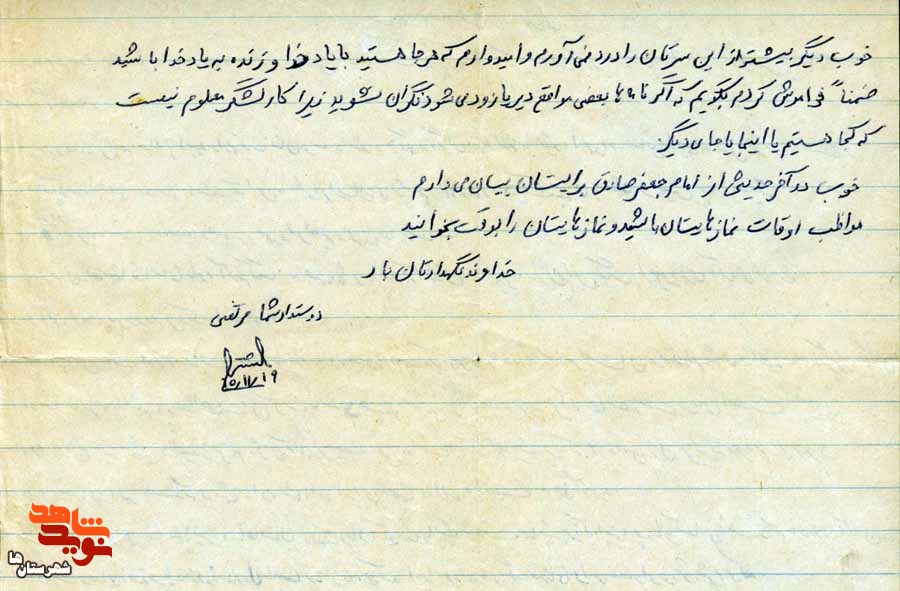 خوب دیگر بیشتر از این سرتان را درد نمی آورم و امیدوارم که هر جا هستید با یاد خدا و زنده به یاد خدا باشید
ضمناً فراموش کردم بگویم که اگر نامه ها بعضی مواقع دیر یا زود می شود نگران نشوید زیرا کار لشگر معلوم نیست
که کجا هستیم یا اینجا یا جای دیگر
خوب در آخر حدیثی از امام جعفر صادق برایتان بیان می دارم
مواظب اوقات نمازهایتان باشید و نمازهایتان را بوقت بخوانید
خداوند نگهدارتان باد
دوستدار شما مرتضی
۶۵/۱۱/۱۹
نوید شاهد
شهرستان ها